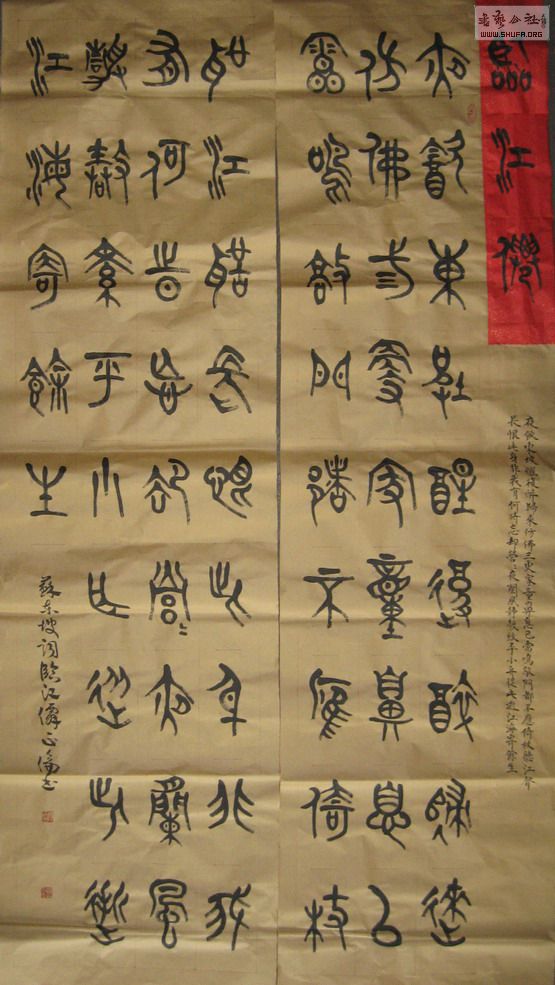 書藝公社
WWW.SHUFA.ORG
臨江僊
夜飲東坡醒復醉歸來仿佛三更家童鼻息已雷鳴敲門都不應倚杖聽江聲
長恨此身非我有何時忘却營營夜闌風靜縠紋平小舟從此逝江海寄餘生
夜飲東坡醒復醉歸來
仿佛三更家童鼻息已
雷鳴敲門都不應倚杖
聽江聲長恨此身非我
有何時忘却營營夜闌風
靜縠紋平小舟從此逝
江海寄餘生
蘇東坡詞臨江僊